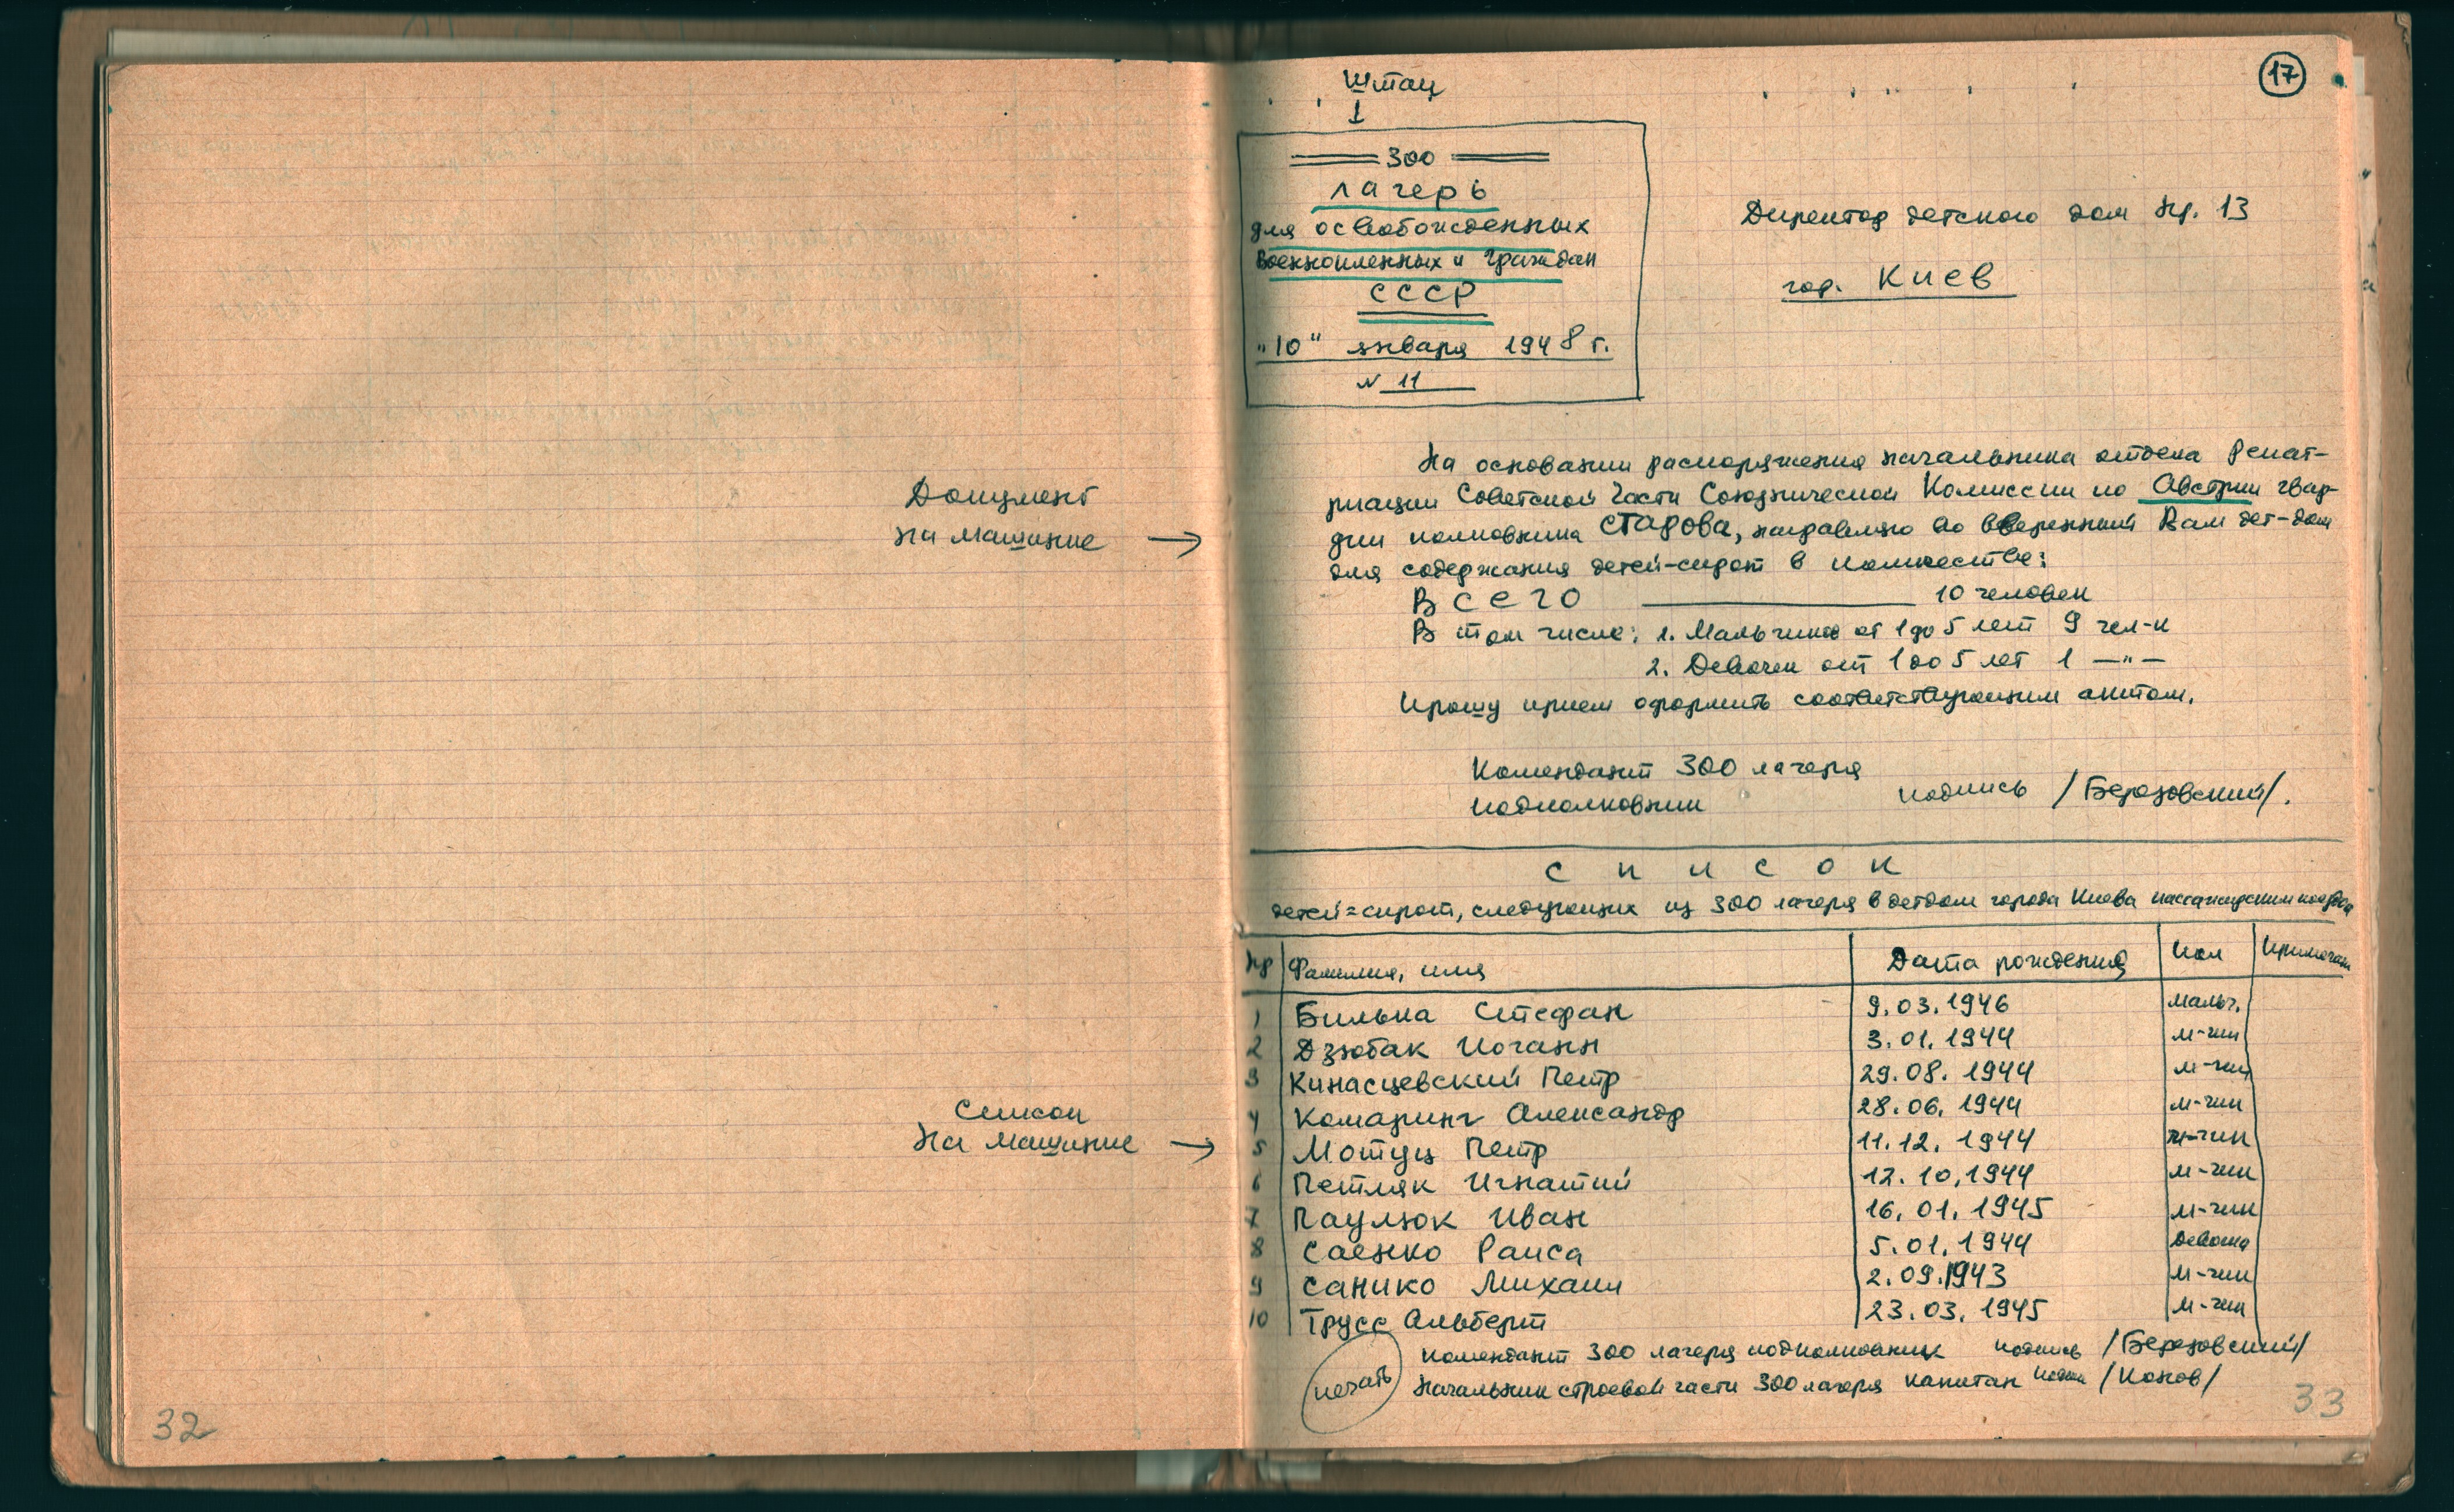 Документ
на машинке →
Список
на машинке →
32
17
Штамп
300
лагерь
для освобожденных
военнопленных и граждан
СССР
"10" января 1948 г.
N 11
Директор детского дом Нр. 13
гор. Киев
На основании распоряжения начальника отдела репат-
риации Советской Части Союзнической Комиссии по Австрии гвар-
дии полковника СТАРОВА, направляю во вверенный Вам дет-дом
для содержания детей-сирот в количестве:
ВСЕГО 10 человек
В том числе: 1. Мальчиков от 1 до 5 лет 9 чел-к
2. Девочек от 1 до 5 лет 1 —"—
Прошу прием оформить соответствующим актом.
Комендант 300 лагеря
подполковник подпись /Березовский/.
список
детей=сирот, следующих из 300 лагеря в детдом города Киева пассажирским поездом
Нр Фамилия, имя Дата рождения Пол Примечан
1 Билька Стефан 9.03.1946 мальч.
2 Дзюбак Иоганн 3.01.1944 м-чик
3 Кинасцевский Петр 29.08.1944 м-чик
4 Комаринг Александр 28.06.1944 м-чик
5 Мотуц Петр 11.12.1944 м-чик
6 Петляк Игнатий 12.10.1944 м-чик
7 Паулюк Иван 16.01.1945 м-чик
8 Саенко Раиса 5.01.1944 девочка
9 Санико Михаил 2.09.1943 м-чик
10 Трусс Альберт 23.03.1945 м-чик
комендант 300 лагеря подполковник подпись /Березовский/
печать начальник строевой части 300 лагеря капитан /Конов/
33